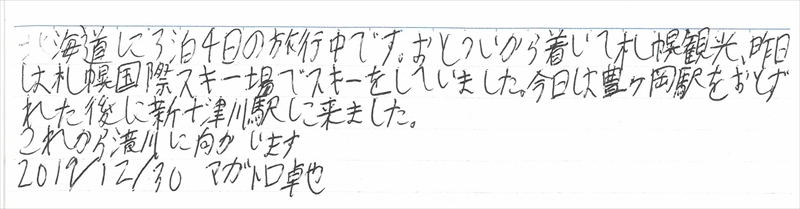 北海道に3泊4日の旅行中です。おとついから着いて札幌観光、昨日
は札幌国際スキー場でスキーをしていました。今日は豊ヶ岡駅をおとず
れた後に新十津川駅に来ました。
これから滝川に向かいます
2019/12/30 マガトロ卓也